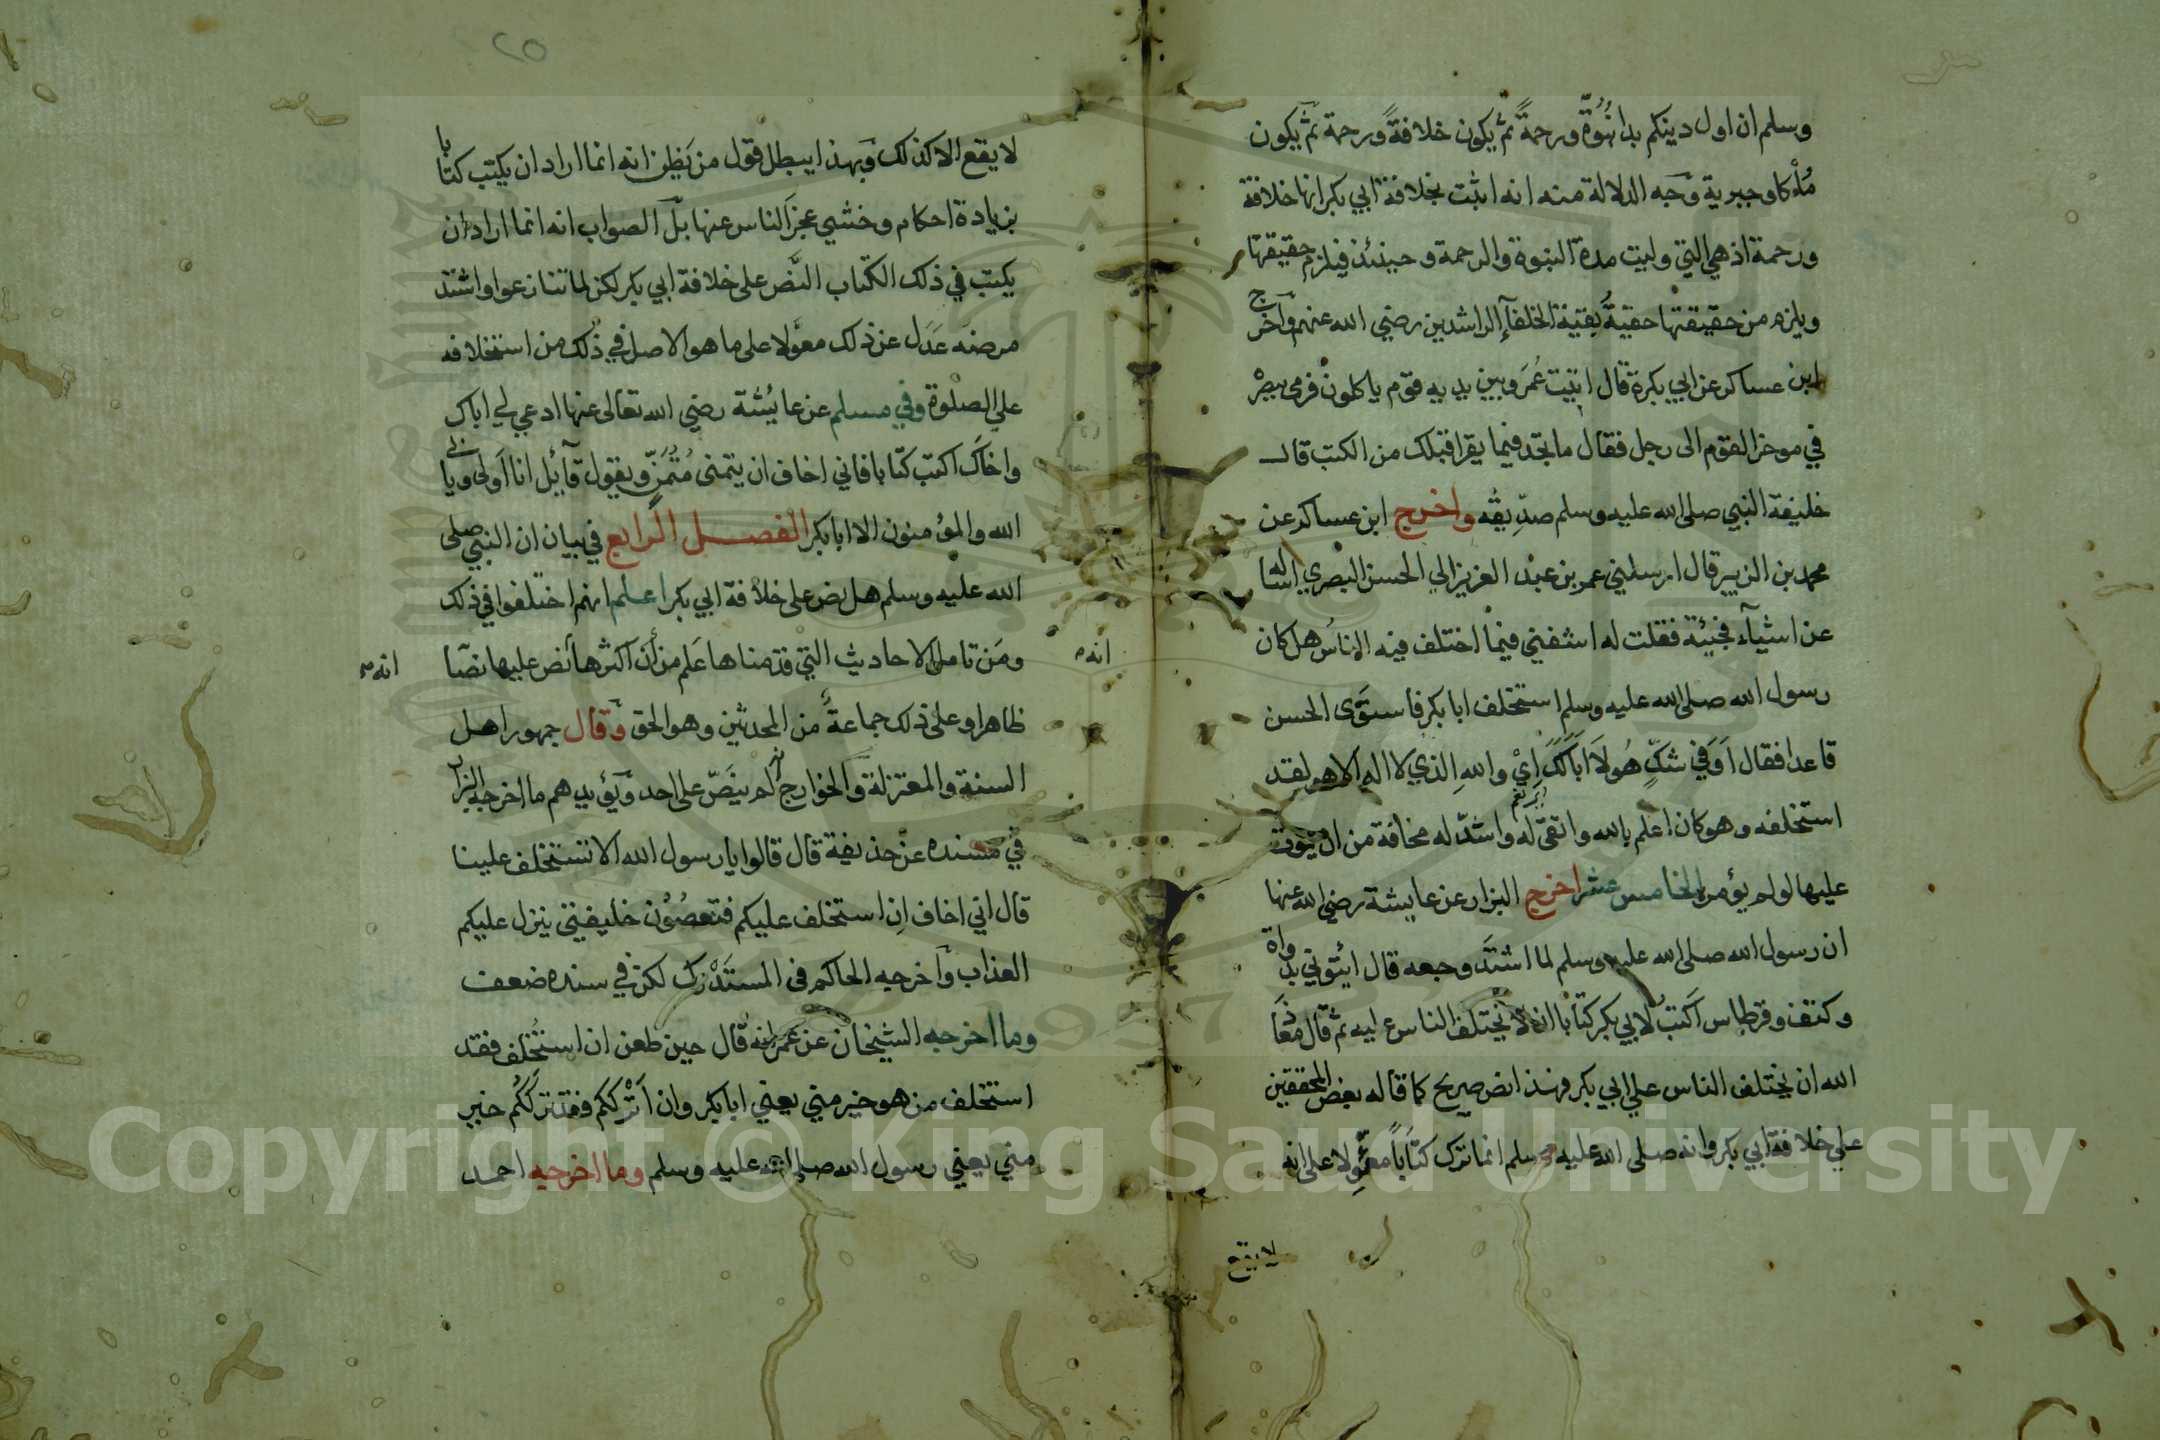 وسلم ان اول دينكم بدا نبوة ورحمة ثم يكون خلافة ورحمة ثم يكون
ملكا وجبرية وجه الدلالة منه انه اثبت بخلافة ابي بكر انها خلافة
ورحمة اذ هي التي وليت مدة النبوة والرحمة وحينئذ فيلزم حقيقتها
ويلزم من حقيقتها حقية بقية الخلفآ الراشدين رضي الله عنهم واخرج
ابن عساكر عن ابي بكرة قال اتيت عمر وبين يديه قوم ياكلون فرمى ببصر
في موخر القوم الى رجل فقال ما تجد فيما يقرا قبلك من الكتب قال
خليفة النبي صلى الله عليه وسلم صديقه واخرج ابن عساكر عن
محمد بن الزبير قال ارسلني عمر بن عبد العزيز الي الحسن البصري اساله
عن اشيآء فجئية فقلت له اشفني فيما اختلف فيه الناس هل كان
رسول الله صلى الله عليه وسلم استخلف ابا بكر فاستوى الحسن
قاعدا فقال اوفي شك هو لا ابالك اي والله الذي لا اله الا هو لقد
استخلفه وهو كان اعلم بالله واتقى له واشد له مخافة من ان يموت
عليها لو لم يؤمر الخامس عشر اخرج البزار عن عايشة رضي الله عنها
ان رسول الله صلى الله عليه وسلم لما اشتد وجعه قال ائتوني بدواة
وكتف وقرطاس اكتب لابي بكر كتابا ان لا يختلف الناس عليه ثم قال معاذ
الله ان يختلف الناس على ابي بكر فهذا نص صريح كما قاله بعض المحققين
على خلافة ابي بكر وانه صلى الله عليه وسلم انما ترك كتابا معولا على انه
لا يقع
٢٥
لا يقع الا كذلك وبهذا يبطل قول من يظن انه انما اراد ان يكتب كتابا
بزيادة احكام وخشي عجز الناس عنها بل الصواب انه انما اراد ان
يكتب في ذلك الكتاب النص على خلافة ابي بكر لكن لما تنازعوا واشتد
مرضه عدل عن ذلك معولا على ما هو الاصل في ذلك من استخلافه
على الصلوة وفي مسلم عن عايشة رضي الله تعالى عنها ادعي لي اباك
واخاك اكتب كتابا فاني اخاف ان يتمنى متمن ويقول قآئل انا اولى ويابى
الله والمؤمنون الا ابا بكر الفصل الرابع في بيان ان النبي صلى
الله عليه وسلم هل نص على خلافة ابي بكر اعلم انهم اختلفوا في ذلك
ومن تامل الاحاديث التي قدمناها علم من أن اكثرها نص عليها نصا
انه
انه
ظاهرا وعلى ذلك جماعة من المحدثين وهو الحق وقال جمهور اهل
السنة والمعتزلة والخوارج لم ينص على احد ويؤيدهم ما اخرجه البزار
في مسنده عن حذيفة قال قالوا يا رسول الله الا تستخلف علينا
قال اني اخاف ان استخلف عليكم فتعصون خليفتي ينزل عليكم
العذاب واخرجه الحاكم في المستدرك لكن في سنده ضعف
وما اخرجه الشيخان عن عمر انه قال حين طعن ان استخلف فقد
استخلف من هو خير مني يعني ابا بكر وان اترككم فقد ترككم خير
مني يعني رسول الله صلى الله عليه وسلم وما اخرجه احمد
Copyright © King Saud University
1957